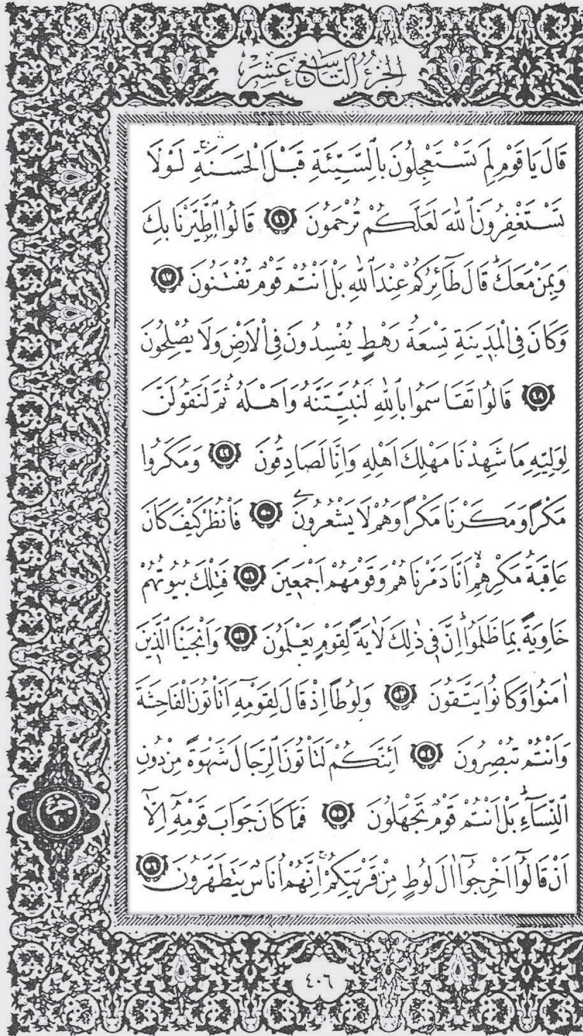 الجزء التاسع عشر
قَالَ يَا قَوْمِ لِمَ تَسْتَعْجِلُونَ بِالسَّيِّئَةِ قَبْلَ الْحَسَنَةِۚ لَوْلَا
تَسْتَغْفِرُونَ اللّٰهَ لَعَلَّكُمْ تُرْحَمُونَ ﴿٤٦﴾ قَالُوا اطَّيَّرْنَا بِكَ
وَبِمَنْ مَعَكَۜ قَالَ طَٓائِرُكُمْ عِنْدَ اللّٰهِ بَلْ اَنْتُمْ قَوْمٌ تُفْتَنُونَ ﴿٤٧﴾
وَكَانَ فِي الْمَد۪ينَةِ تِسْعَةُ رَهْطٍ يُفْسِدُونَ فِي الْاَرْضِ وَلَا يُصْلِحُونَ
﴿٤٨﴾ قَالُوا تَقَاسَمُوا بِاللّٰهِ لَنُبَيِّتَنَّهُ وَاَهْلَهُ ثُمَّ لَنَقُولَنَّ
لِوَلِيِّه۪ مَا شَهِدْنَا مَهْلِكَ اَهْلِه۪ وَاِنَّا لَصَادِقُونَ ﴿٤٩﴾ وَمَكَرُوا
مَكْرًا وَمَكَرْنَا مَكْرًا وَهُمْ لَا يَشْعُرُونَ ﴿٥٠﴾ فَانْظُرْ كَيْفَ كَانَ
عَاقِبَةُ مَكْرِهِمْۙ اَنَّا دَمَّرْنَاهُمْ وَقَوْمَهُمْ اَجْمَع۪ينَ ﴿٥١﴾ فَتِلْكَ بُيُوتُهُمْ
خَاوِيَةً بِمَا ظَلَمُواۜ اِنَّ ف۪ي ذٰلِكَ لَاٰيَةً لِقَوْمٍ يَعْلَمُونَ ﴿٥٢﴾ وَاَنْجَيْنَا الَّذ۪ينَ
اٰمَنُوا وَكَانُوا يَتَّقُونَ ﴿٥٣﴾ وَلُوطًا اِذْ قَالَ لِقَوْمِه۪ٓ اَتَأْتُونَ الْفَاحِشَةَ
وَاَنْتُمْ تُبْصِرُونَ ﴿٥٤﴾ اَئِنَّكُمْ لَتَأْتُونَ الرِّجَالَ شَهْوَةً مِنْ دُونِ
النِّسَٓاءِۜ بَلْ اَنْتُمْ قَوْمٌ تَجْهَلُونَ ﴿٥٥﴾ فَمَا كَانَ جَوَابَ قَوْمِه۪ٓ اِلَّٓا
اَنْ قَالُٓوا اَخْرِجُٓوا اٰلَ لُوطٍ مِنْ قَرْيَتِكُمْۚ اِنَّهُمْ اُنَاسٌ يَتَطَهَّرُونَ ﴿٥٦﴾
٤٠٦